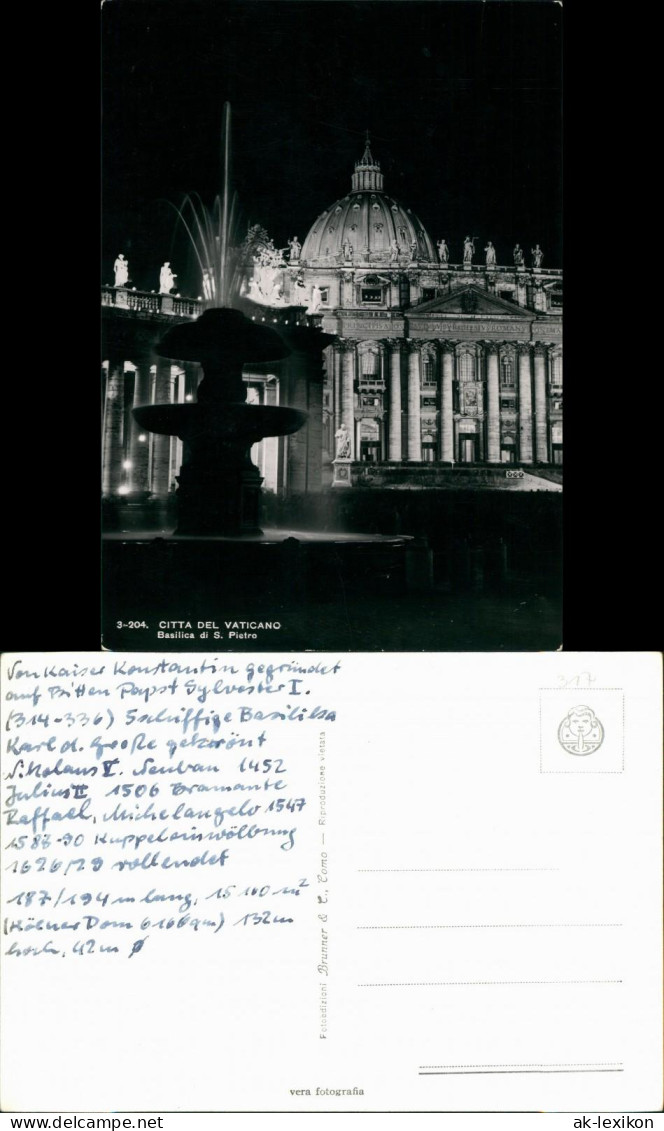 3-204. CITTA DEL VATICANO
Basilica di S. Pietro
Von Kaiser Konstantin gegründet
auf Bitten Papst Sylvester I.
(314-336) 5schiffige Basilika
Karl d. Große gekrönt
Nikolaus V. Neubau 1452
Julius II 1506 Bramante
Raffael, Michelangelo 1547
1588-90 Kuppeleinwölbung
1626/29 vollendet
187/194 m lang, 15 160 m²
(Kölner Dom 6166qm) 132m
hoch, 42m ∅
317
Fotoedizioni Brunner & C., Como — Riproduzione vietata
vera fotografia
www.delcampe.net
ak-lexikon